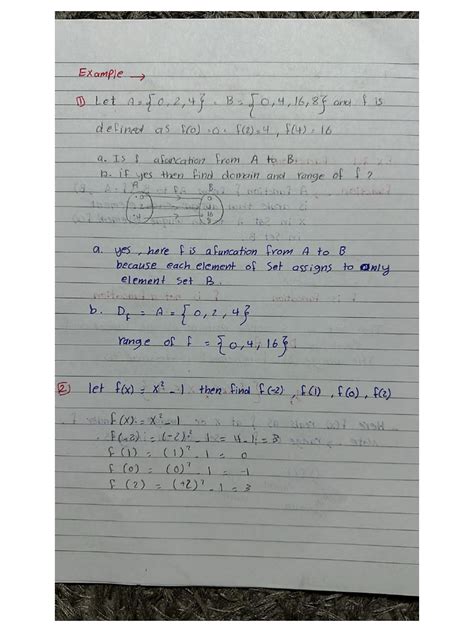 Example →
① Let A = {0, 2, 4} . B = {0, 4, 16, 8} and f is
defined as f(0) = 0 . f(2) = 4 , f(4) = 16
a. Is f afuncation from A to B.
b. if yes then find domain and range of f ?
A B
0 0
2 4
4 16
8
a. yes, here f is afuncation from A to B
because each element of Set assigns to only
element Set B.
b. D_f = A = {0, 2, 4}
range of f = {0, 4, 16}
② let f(x) = x² - 1 then find f(-2) , f(1) , f(0) , f(2)
f(x) = x² - 1
f(-2) = (-2)² - 1 = 4 - 1 = 3
f(1) = (1)² - 1 = 0
f(0) = (0)² - 1 = -1
f(2) = (+2)² - 1 = 3